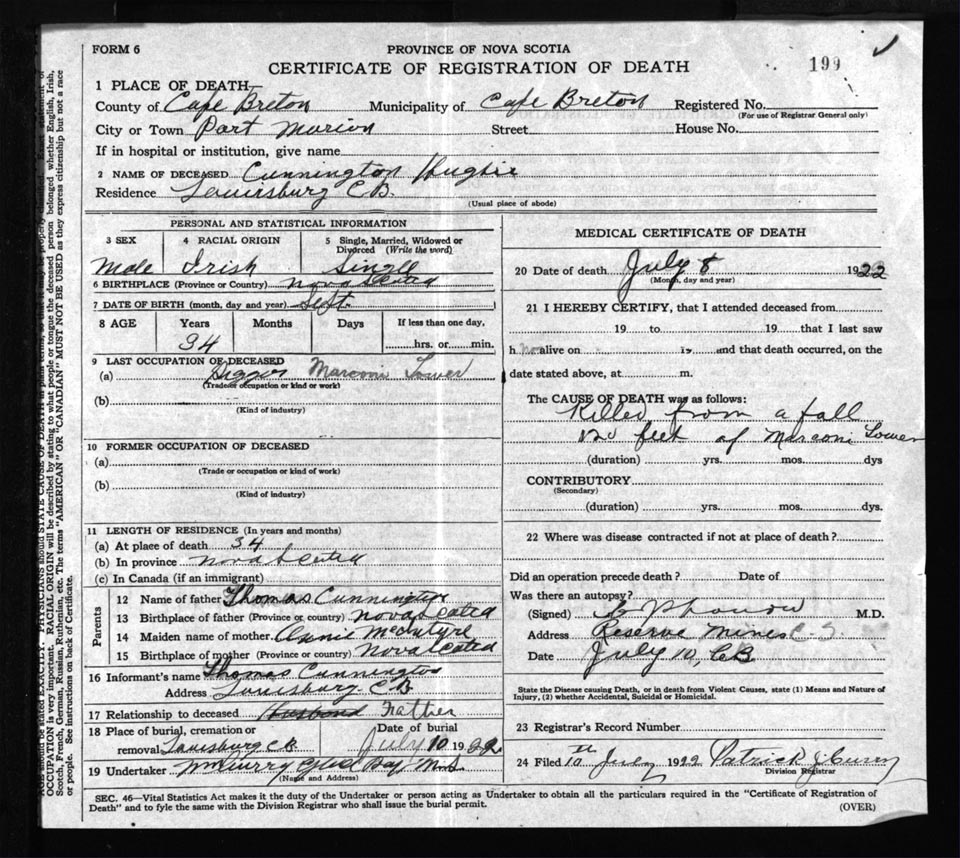 FORM 6
PROVINCE OF NOVA SCOTIA
CERTIFICATE OF REGISTRATION OF DEATH
199
1 PLACE OF DEATH
County of Cape Breton Municipality of Cape Breton Registered No.
(For use of Registrar General only)
City or Town Port Morien Street House No.
If in hospital or institution, give name
2 NAME OF DECEASED Cunnington Hughie
Residence Louisburg C B.
(Usual place of abode)
PERSONAL AND STATISTICAL INFORMATION
3 SEX 4 RACIAL ORIGIN 5 Single, Married, Widowed or
Divorced (Write the word)
Male Irish Single
6 BIRTHPLACE (Province or Country) Nova Scotia
7 DATE OF BIRTH (month, day and year) Sept.
8 AGE Years Months Days If less than one day,
34 hrs. or min.
9 LAST OCCUPATION OF DECEASED
(a) Digger Marconi Tower
(Trade or occupation or kind of work)
(b)
(Kind of industry)
10 FORMER OCCUPATION OF DECEASED
(a)
(Trade or occupation or kind of work)
(b)
(Kind of industry)
11 LENGTH OF RESIDENCE (In years and months)
(a) At place of death 34
(b) In province Nova Scotia
(c) In Canada (if an immigrant)
Parents
12 Name of father Thomas Cunnington
13 Birthplace of father (Province or country) Nova Scotia
14 Maiden name of mother Annie McIntyre
15 Birthplace of mother (Province or country) Nova Scotia
16 Informant's name Thomas Cunnington
Address Louisburg C B
17 Relationship to deceased Husband Father
18 Place of burial, cremation or Date of burial
removal Louisburg C B. July 10 1922
19 Undertaker
(Name and Address)
MEDICAL CERTIFICATE OF DEATH
20 Date of death July 8 1922
(Month, day and year)
21 I HEREBY CERTIFY, that I attended deceased from
19 to 19 that I last saw
h alive on 19 and that death occurred, on the
date stated above, at m.
The CAUSE OF DEATH was as follows:
Killed from a fall
feet of Marconi Tower
(duration) yrs. mos. dys
CONTRIBUTORY
(Secondary)
(duration) yrs. mos. dys.
22 Where was disease contracted if not at place of death ?
Did an operation precede death ? Date of
Was there an autopsy?
(Signed) M.D.
Address Reserve Mines
Date July 10, CB
State the Disease causing Death, or in death from Violent Causes, state (1) Means and Nature of
Injury, (2) whether Accidental, Suicidal or Homicidal.
23 Registrar's Record Number
24 Filed 10 July 1922 Patrick
Division Registrar
SEC. 46—Vital Statistics Act makes it the duty of the Undertaker or person acting as Undertaker to obtain all the particulars required in the "Certificate of Registration of
Death" and to fyle the same with the Division Registrar who shall issue the burial permit.
(OVER)
OCCUPATION is very important. RACIAL ORIGIN will be described by stating to what people or tongue the deceased person belonged whether English, Irish,
Scotch, French, German, Russian, Ruthenian, etc. The terms "AMERICAN" OR "CANADIAN" MUST NOT BE USED as they express citizenship but not a race
or people. See instructions on back of Certificate.